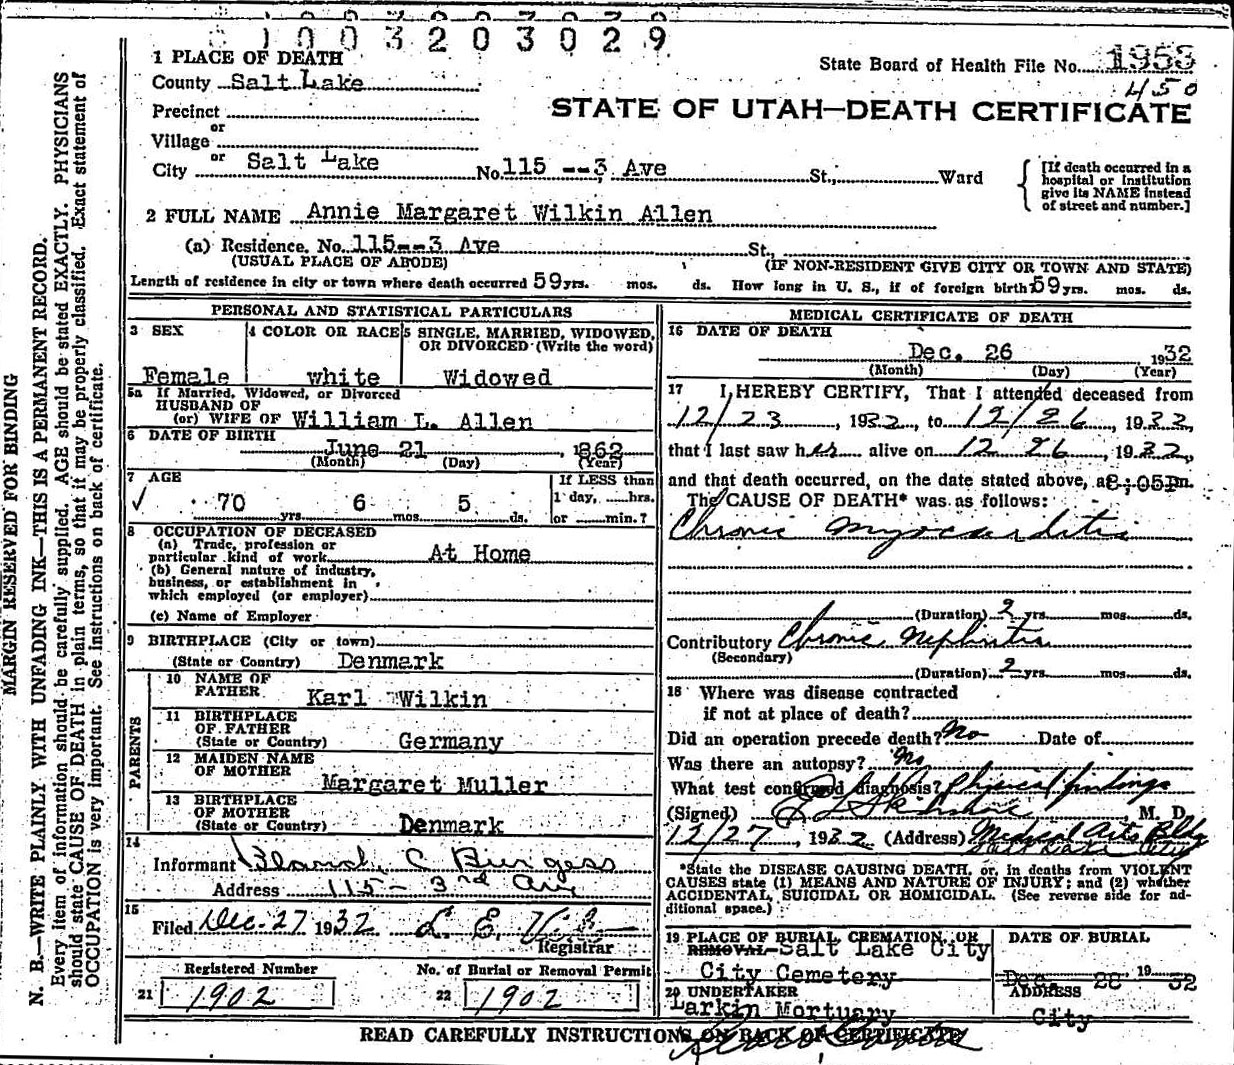 1 0 0 3 2 0 3 0 2 9
1 PLACE OF DEATH
State Board of Health File No. 1953
County Salt Lake
450
Precinct
STATE OF UTAH—DEATH CERTIFICATE
or
Village
or
City Salt Lake No. 115 --3, Ave St., Ward
[If death occurred in a hospital or institution give its NAME instead of street and number.]
2 FULL NAME Annie Margaret Wilkin Allen
(a) Residence. No. 115--3 Ave St.,
(USUAL PLACE OF ABODE) (IF NON-RESIDENT GIVE CITY OR TOWN AND STATE)
Length of residence in city or town where death occurred 59 yrs. mos. ds. How long in U. S., if of foreign birth 59 yrs. mos. ds.
PERSONAL AND STATISTICAL PARTICULARS
3 SEX 4 COLOR OR RACE 5 SINGLE, MARRIED, WIDOWED, OR DIVORCED (Write the word)
Female white Widowed
5a If Married, Widowed, or Divorced
HUSBAND OF
(or) WIFE OF William L. Allen
6 DATE OF BIRTH
June 21, 1862
(Month) (Day) (Year)
7 AGE If LESS than
1 day, hrs.
70 yrs. 6 mos. 5 ds. or min.?
8 OCCUPATION OF DECEASED
(a) Trade, profession or
particular kind of work At Home
(b) General nature of industry,
business, or establishment in
which employed (or employer)
(c) Name of Employer
9 BIRTHPLACE (City or town)
(State or Country) Denmark
PARENTS
10 NAME OF
FATHER Karl Wilkin
11 BIRTHPLACE
OF FATHER
(State or Country) Germany
12 MAIDEN NAME
OF MOTHER Margaret Muller
13 BIRTHPLACE
OF MOTHER
(State or Country) Denmark
14
Informant C Burgess
Address 115 - 3rd Ave
15
Filed Dec. 27 1932 L. E.
Registrar
Registered Number No. of Burial or Removal Permit
21 1902 22 1902
MEDICAL CERTIFICATE OF DEATH
16 DATE OF DEATH
Dec. 26 1932
(Month) (Day) (Year)
17 I HEREBY CERTIFY, That I attended deceased from
12/23, 1932, to 12/26, 1932,
that I last saw her alive on 12 26, 1932,
and that death occurred, on the date stated above, at 8;05Pm.
The CAUSE OF DEATH* was as follows:
Chronic Myocarditis
(Duration) 2 yrs. mos. ds.
Contributory Chronic Nephritis
(Secondary)
(Duration) 2 yrs. mos. ds.
18 Where was disease contracted
if not at place of death?
Did an operation precede death? No Date of
Was there an autopsy? No
What test confirmed diagnosis? Physical findings
(Signed) M. D.
12/27, 1932 (Address) Medical Arts Bldg
Salt Lake City
*State the DISEASE CAUSING DEATH, or, in deaths from VIOLENT
CAUSES state (1) MEANS AND NATURE OF INJURY; and (2) whether
ACCIDENTAL, SUICIDAL OR HOMICIDAL. (See reverse side for additional space.)
19 PLACE OF BURIAL, CREMATION, OR REMOVAL DATE OF BURIAL
Salt Lake City
City Cemetery Dec. 28 1932
20 UNDERTAKER ADDRESS
Larkin Mortuary City
READ CAREFULLY INSTRUCTIONS ON BACK OF CERTIFICATE
MARGIN RESERVED FOR BINDING
N. B.—WRITE PLAINLY WITH UNFADING INK—THIS IS A PERMANENT RECORD.
Every item of information should be carefully supplied. AGE should be stated EXACTLY. PHYSICIANS
should state CAUSE OF DEATH in plain terms, so that it may be properly classified. Exact statement of
OCCUPATION is very important. See instructions on back of certificate.